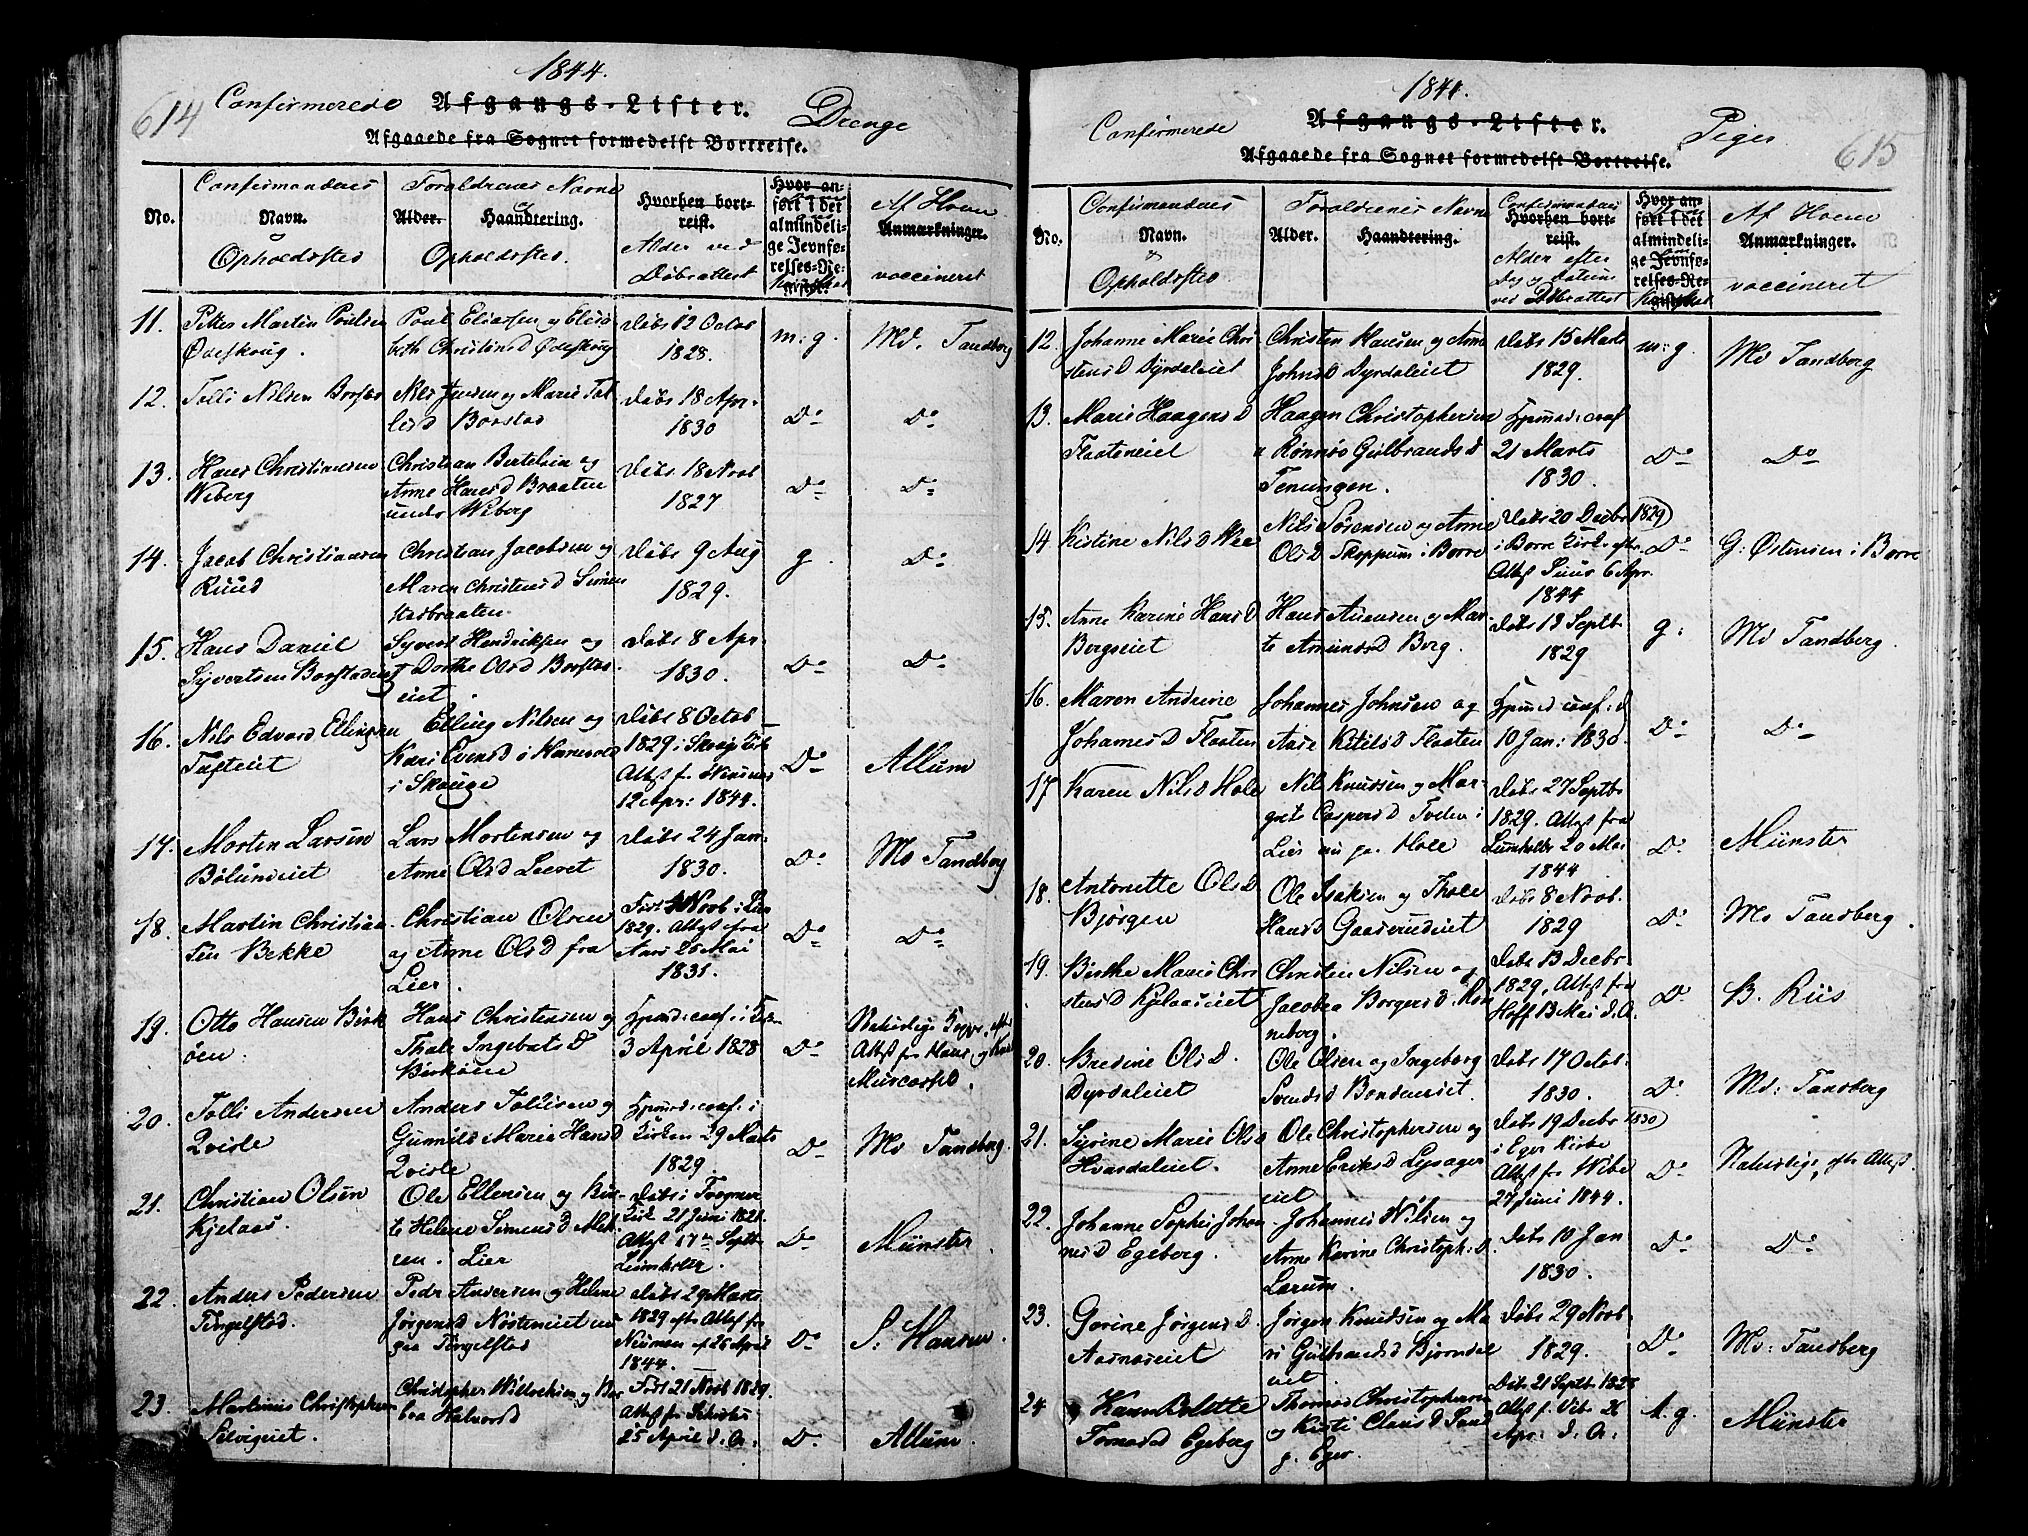 1844.
614 Confirmerede Afgangs-Lister. Drenge
Afgaaede fra Sognet formedelst Bortreise.
No.
Confirmandens
Navn.
Opholdssted
Forældrenes Navne
Alder. Haandtering.
Opholdssted.
Hvorhen bort-
reist.
Alder ved
Døbeattest
Hvor an-
ført i det
almindeli-
ge Jevnfø-
relses-Re-
Af Hvem
Anmærkninger.
vaccineret
11.
Ødeskoug.
Poul Eliasen og Elisa
beth Christensd Ødeskoug
Døbt 12 Octob
1828.
m: g.
Md. Tandberg
12.
Tolli Nilsen Borstad
Nils Jensen og Marie Tol
lesd Borstad
Døbt 18 Apr.
1830
Do
Do
13.
Hans Christiansen
Wiberg
Christian Bertelsen og
Anne Hansd Braaten
under Wiberg
Døbt 18 Novb
1827
Do
Do
14.
Jacob Christiansen
Ruud
Christian Jacobsen og
Maren Christensd Simen
stadbraaten.
Døbt 9 Aug
1829.
g.
Do
15.
Hans Daniel
Syvertsen Borstadeiet
Syvert Hendriksen og
Dorthe Olsd Borstad
eiet.
Døbt 8 Apr.
1830.
Do
Do
16.
Nils Edvard Ellingsen
Tufteiet
Elling Nilsen og
Kari Evensd i Hanevold
i Skouge
Døbt 8 Octob
1829 i Skoug
Attest fr.
12 Apr: 1844.
Do
Allum
17.
Morten Larsen
Bølumeiet
Lars Mortensen og
Anne Olsd Leeret
Døbt 24 Jan.
1830.
Do
Md Tandberg
18.
Martin Christian
sen Bekke
Christian Olsen
og Anne Olsd fra
Lier.
1829. Attest fra
1831.
Do
Do
19.
Otto Hansen Birk
øen.
Hans Christensen og
Thale Ingebretsd
Birkøen
3 April 1828
Do
Naturlige Kopper, efter
Attest fr Hans og
20.
Tolli Andersen
Qvisle
Anders Tollisen og
Gunnild Marie Hansd
Qvisle
Kirken 29 Marts
1829.
Do
Md Tandberg.
21.
Christian Olsen
Kjelaas.
Ole Ellensen og Bir-
te Helene Simensd
Lier
Døbt i Frogner
Kirk 21 Juni 1821.
Attest 17de Septb
Lumholtz.
Do
Münster.
22.
Anders Pedersen
Tingelstad.
Peder Andersen og Helene
Jørgensd Nøsteneiet nu
paa Tingelstad
Døbt 29 Marts
1829 eftr Attest fr
Neuman af 26 April
1844.
Do
S: Hansen.
23.
Martinus Christophersen
Selvigeiet.
Christopher
Halvorsd
Født 21 Novb 1829.
Attest fr
25 April d. A.
Do
Allum.
1844.
Confirmerede Afgangs-Lister. Piger 615
Afgaaede fra Sognet formedelst Bortreise.
No.
Confirmandens
Navn.
Opholdssted
Forældrenes Navne
Alder. Haandtering.
Confirmandens
Hvorhen bort-
reist.
Alder efter
Dag og Datum
ved Døbeattest
Hvor an-
ført i det
almindeli-
ge Jevnfø-
relses-Re-
Af Hvem
Anmærkninger.
vaccineret
12.
Johanne Marie Chri
stensd Dyrdaleiet
Christen Hansen og Anne
Johnsd Dyrdaleiet
Døbt 15 Marts
1829.
m: g.
Md Tandberg
13.
Maren Haagensd
Flaateneiet
Haagen Christophersen
Gulbrandsd
Hjemmed: conf
21 Marts
1830.
Do
Do
14
Kistine Nilsd Wee
Nils Sørensen og Anne
Olsd Skoppum i Borre
Døbt 20 Decbr 1829
i Borre Kirke eftr
Attest 6 Apr.
1844
Do
G: Østensen i Borre
15.
Anne Karine Hansd
Bergseiet
Hans Amensen og Mar-
te Amundsd Berg.
Døbt 13 Septb
1829
g:
Md Tandberg.
16.
Maren Andrine
Johannesd Flaaten
Johannes Johnsen og
Aase Kitelsd Flaaten
Hjemmed conf: d
10 Jan: 1830.
Do
Do
17
Karen Nilsd Hole
Nils Knudsen og Mar-
grete Caspersd Tveten i
Lier nu paa Hole
Døbt 27 Septb
1829. Attest fra
Lumholtz 20 Mai
1844
Do
Münster
18.
Antonette Olsd
Bjørgen
Ole Isaksen og Thale
Hansd Gaarudeiet
Døbt 8 Novb.
1829
Do
Md Tandberg.
19.
Birthe Marie Chri
stensd Kjelaaseiet
Christen Nilsen og
Jacobea Borgersd. Røn
neberg.
Døbt 13 Decbr.
1829, Attest fra
Hoff 13 Mai d. A.
Do
B. Riis
20.
Bredine Olsd.
Dyrdaleiet
Ole Olsen og Ingeborg
Svendsd Bondeneiet.
Døbt 17 Octob.
1830.
Do
Md: Tandberg
21.
Syrine Marie Olsd
Hvardaleiet.
Ole Christophersen og
Anne Eriksd Lysager
eiet
Døbt 19 Decbr 1830
i Eger Kirke
Attest fr Wibe
27 Juni 1844.
Do
Naturlige, eftr Attest.
22.
Johanne Sophie Johan
nesd Egeberg.
Johannes Nilsen og
Anne Karine Christoph:D.
Lerum.
Døbt 10 Jan
1830.
Do
Do
23.
Gorine Jørgensd.
Aasnæseiet
Jørgen Knudsen og Ma
ri Gulbrandsd Bjørndal
eiet.
Døbt 29 Novb
1829.
Do
Md: Tandberg
24
Karen Bolette
Tomasd Egeberg
Thomas Christophersen
og Kisti Clausd Sand
p. Eger.
Døbt 21 Septb 1828
Attest f. Vibe 26
Apr: d. A.
t. g.
Münster